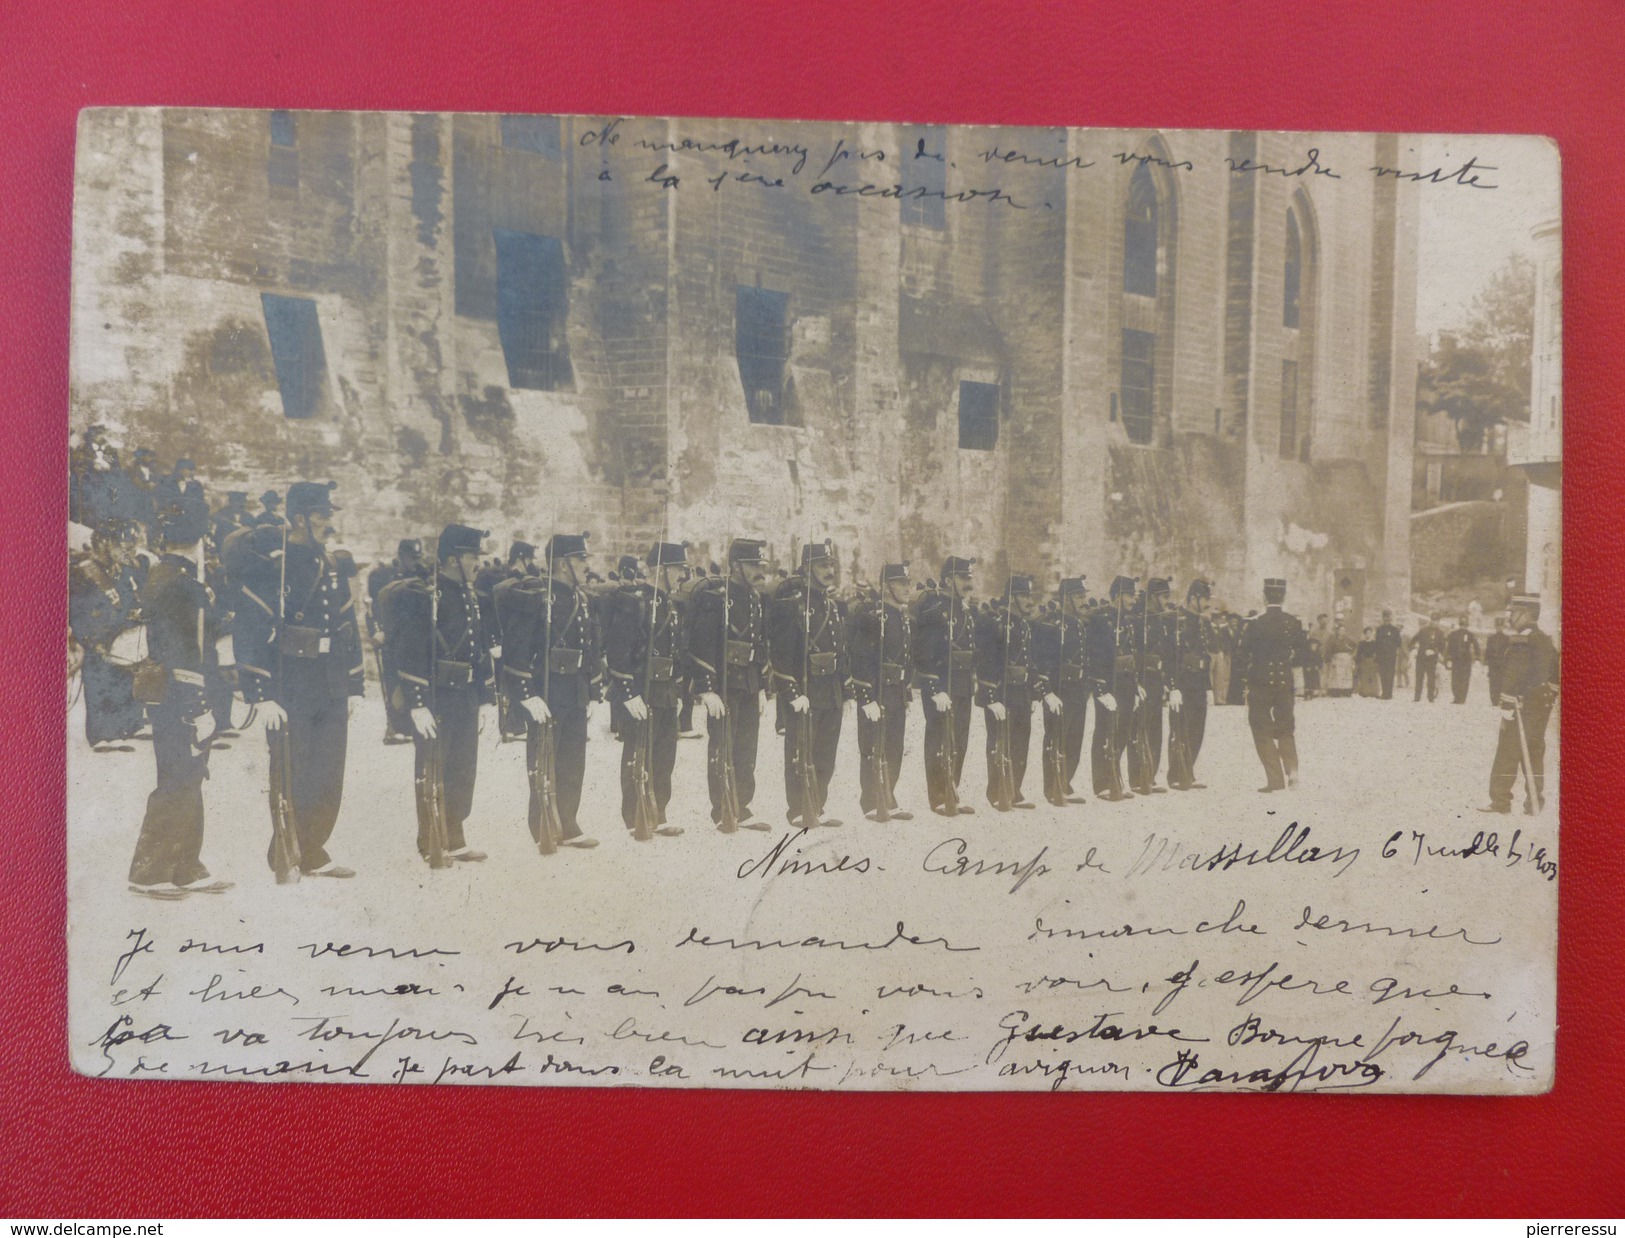 Ne manquerez pas de venir vous rendre visite
à la 1ère occasion.
Nimes. Camp de Massillan 6 Juillet 1903
Je suis venu vous demander dimanche dernier
et hier mais je n'ai pas pu vous voir, j'espère que
ça va toujours très bien ainsi que Gustave Bonne poignée
de main Je part dans la nuit pour avignon.
www.delcampe.net
pierreressu